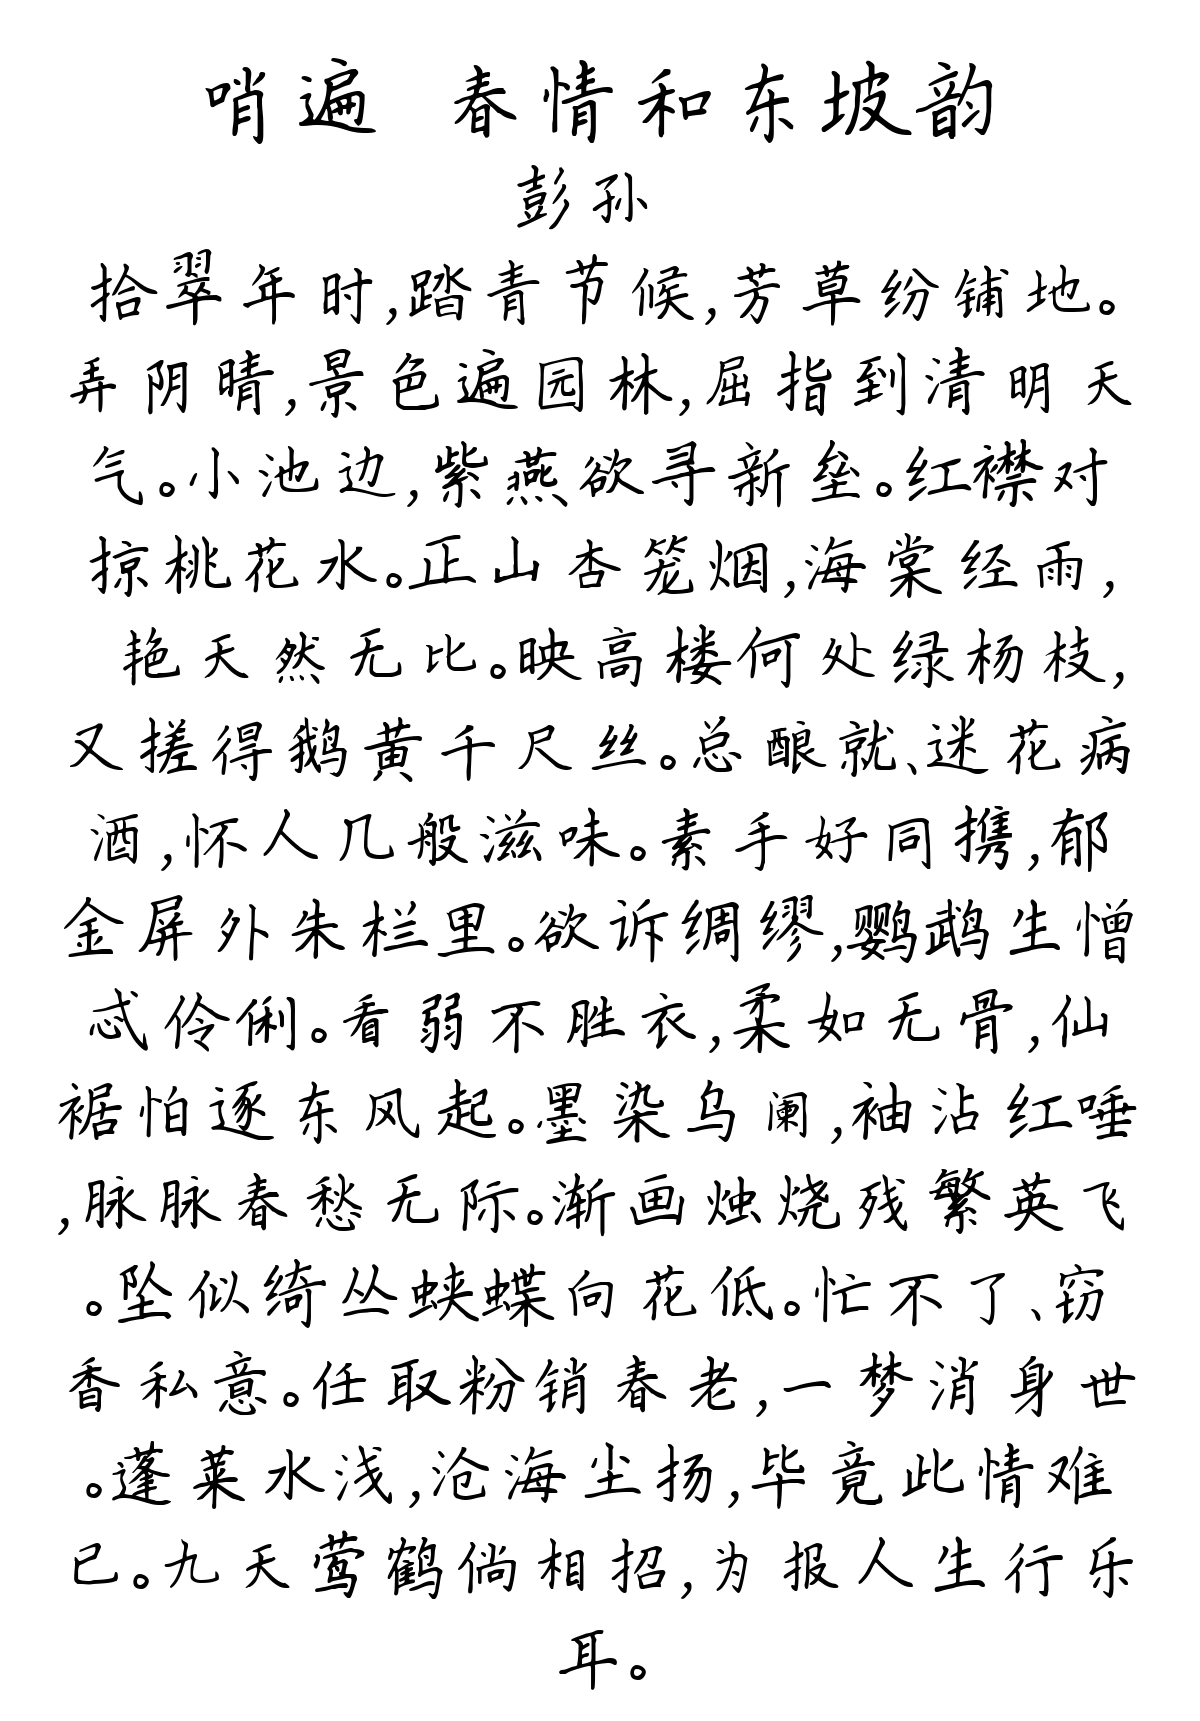 哨遍 春情和东坡韵
彭孙
拾翠年时,踏青节候,芳草纷铺地。
弄阴晴,景色遍园林,屈指到清明天
气。小池边,紫燕欲寻新垒。红襟对
掠桃花水。正山杏笼烟,海棠经雨,
艳天然无比。映高楼何处绿杨枝,
又搓得鹅黄千尺丝。总酿就、迷花病
酒,怀人几般滋味。素手好同携,郁
金屏外朱栏里。欲诉绸缪,鹦鹉生憎
忒伶俐。看弱不胜衣,柔如无骨,仙
裾怕逐东风起。墨染乌阑,袖沾红唾
,脉脉春愁无际。渐画烛烧残繁英飞
。坠似绮丛蛱蝶向花低。忙不了、窃
香私意。任取粉销春老,一梦消身世
。蓬莱水浅,沧海尘扬,毕竟此情难
已。九天莺鹤倘相招,为报人生行乐
耳。